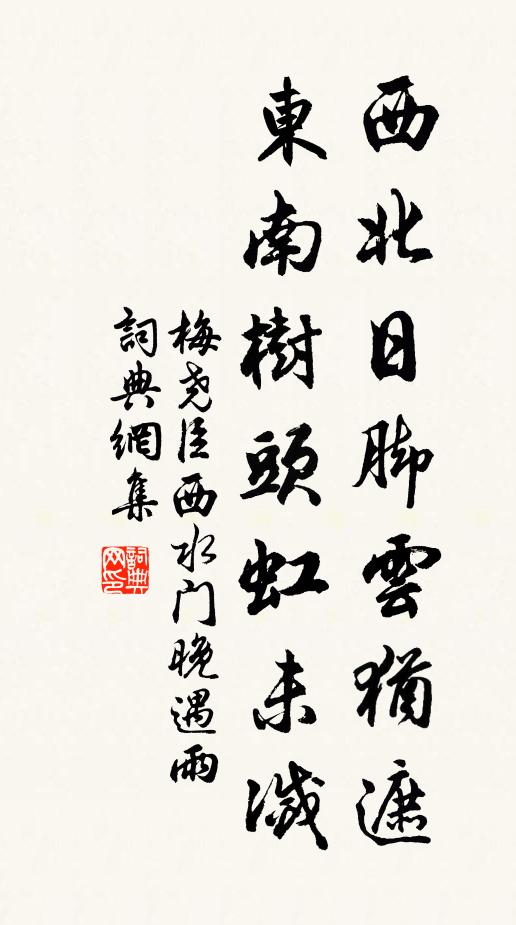 西北日脚雲猶遮
東南樹頭虹未滅
梅尧臣西水门晚遇雨
詞典網集
詞典网印